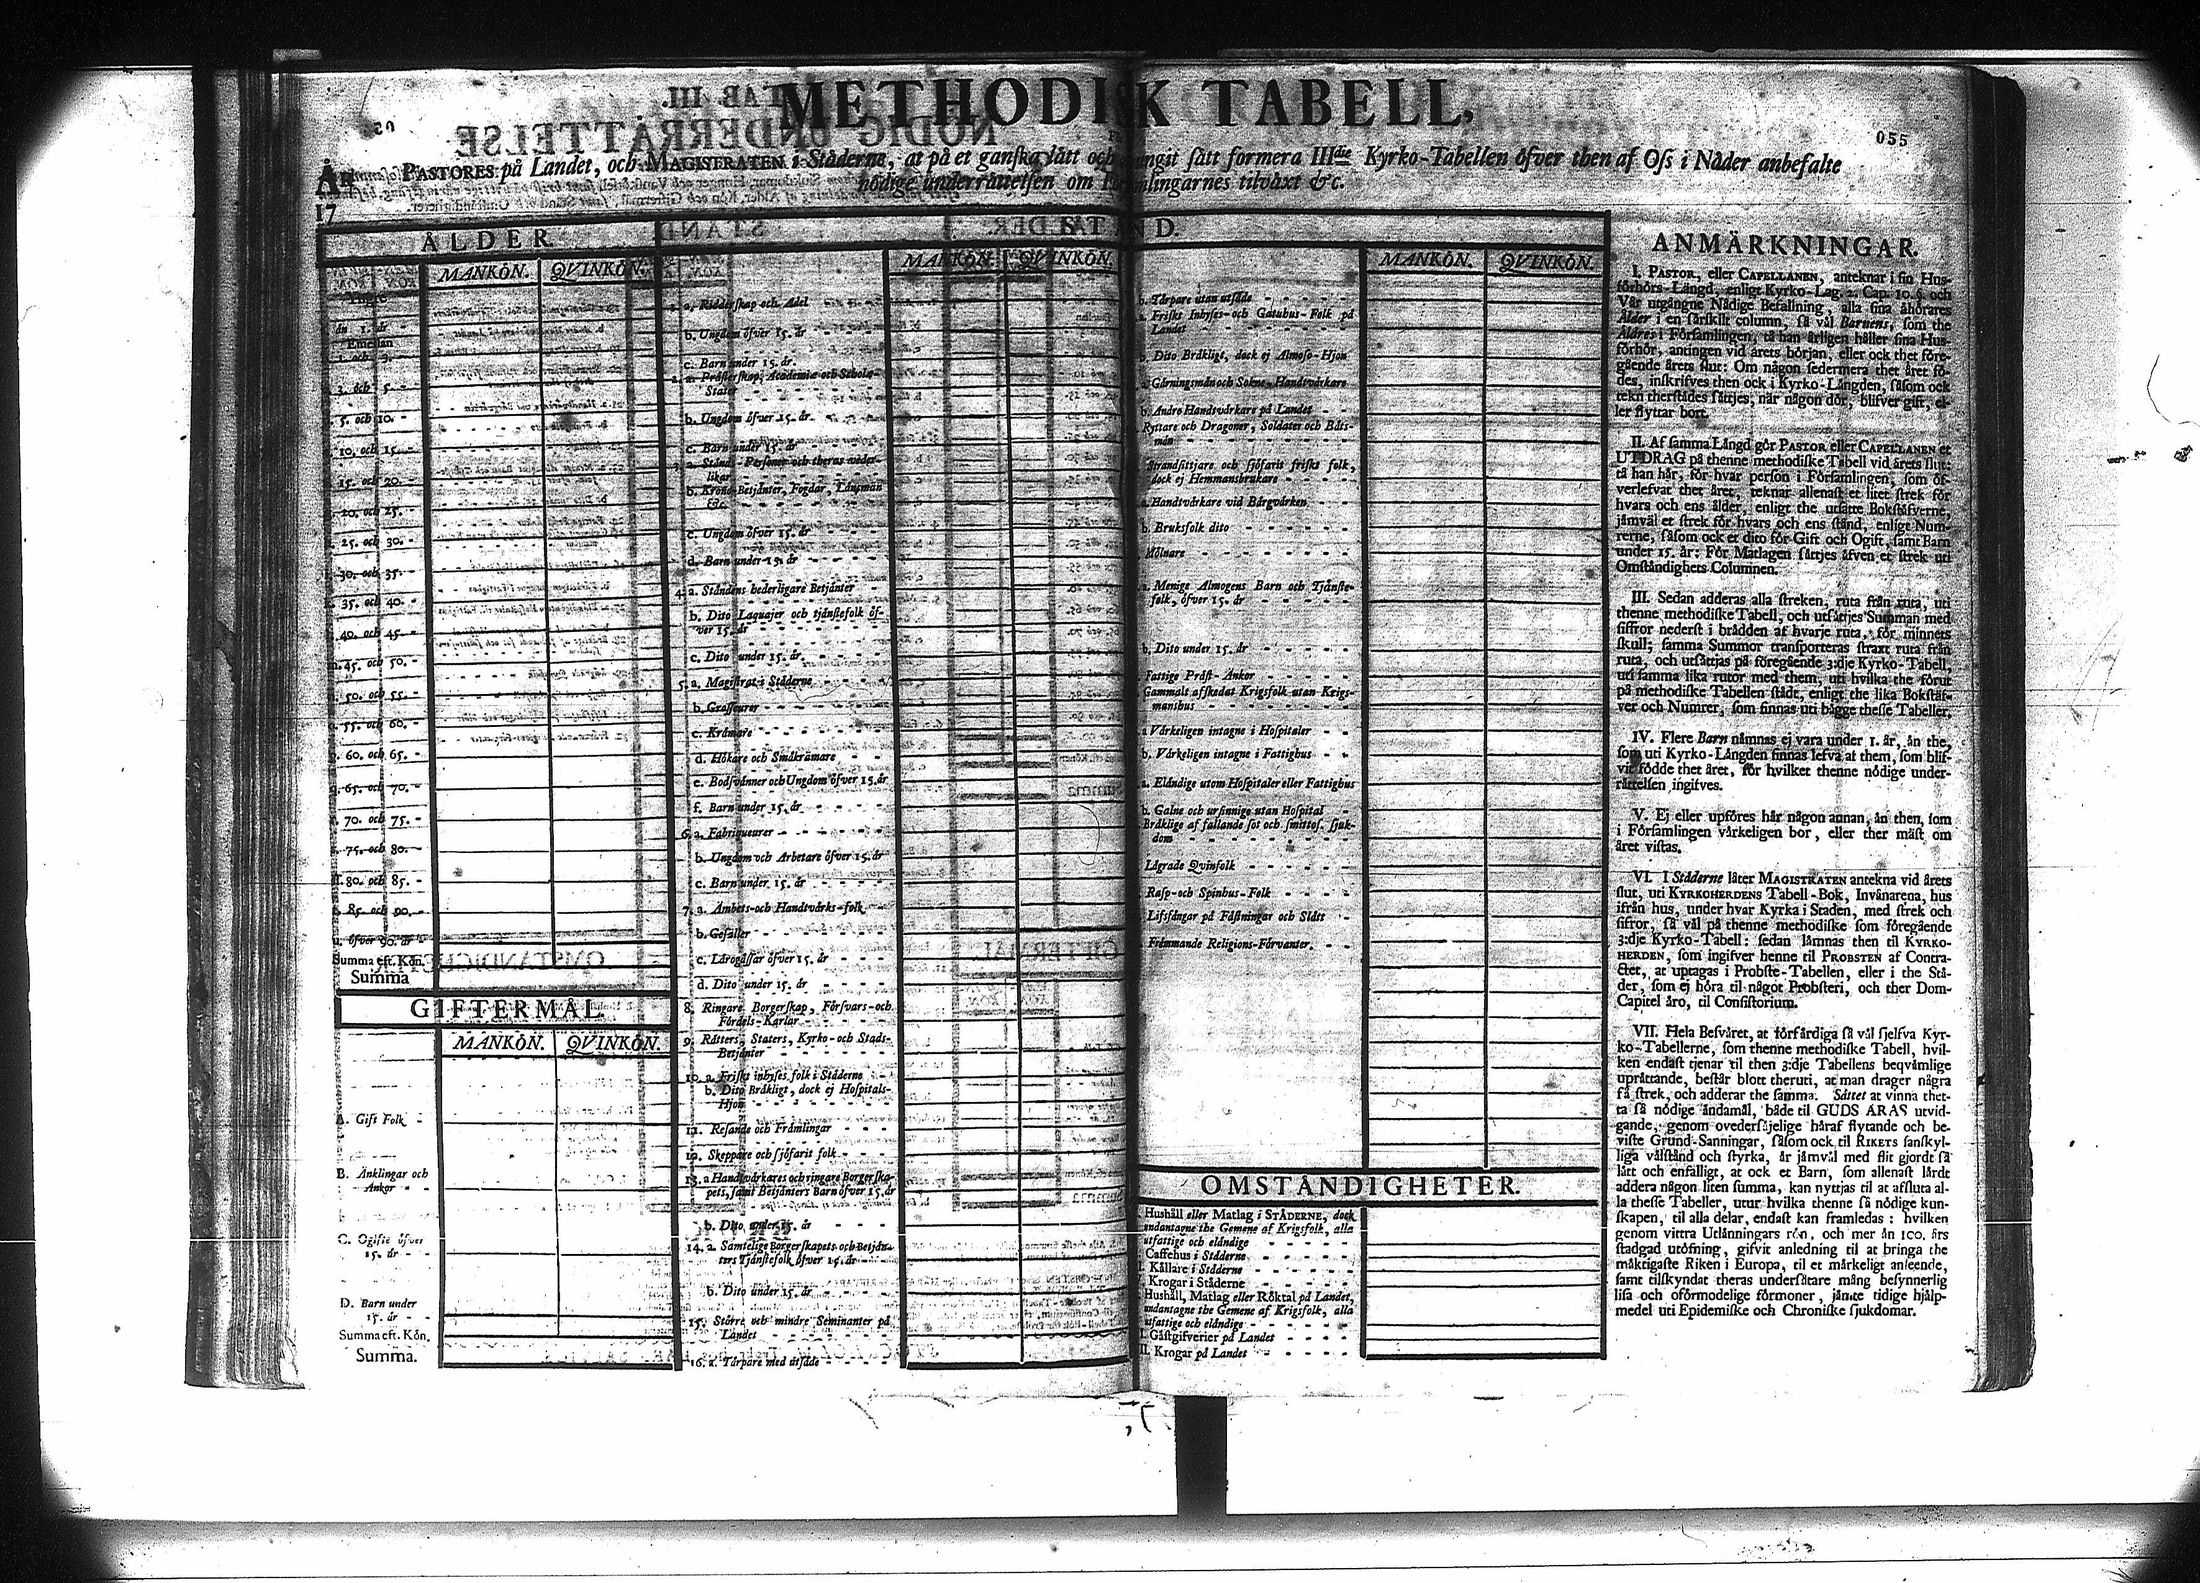 METHODISK TABELL,
055
PASTORES på Landet, och MAGISTRATEN i Städerne, at på et ganska lätt och sätt formera IIIdie Kyrko-Tabellen öfver then af Oss i Nåder anbefalte
nödige underrättelsen om tilväxt &c.
År
17
ÅLDER.
MANKÖN. QVINKÖN.
Yngre
än 1. år -
Emellan
1. och 3.
3. och 5. -
5. och 10. -
10. och 15. -
15. och 20. -
20. och 25. -
25. och 30. -
30. och 35. -
35. och 40. -
40. och 45. -
45. och 50. -
50. och 55. -
55. och 60. -
60. och 65. -
65. och 70. -
70. och 75. -
75. och 80. -
80. och 85. -
85. och 90. -
u. öfver 90. år -
Summa eft. Kön.
Summa
GIFTERMÅL.
MANKÖN. QVINKÖN.
A. Gift Folk -
B. Änklingar och
Änkor -
C. Ogifte öfver
15. år -
D. Barn under
15. år -
Summa eft. Kön.
Summa.
STÅND.
MANKÖN. QVINKÖN.
1. a. Ridderskap och Adel
b. Ungdom öfver 15. år
c. Barn under 15. år
2. a. Prästerskap, Academiæ och Schole-
Stater
b. Ungdom öfver 15. år
c. Barn under 15. år
3. a. Stånds-Personer och theras veder-
likar
b. Krono-Betjänter, Fogdar, Länsmän
&c.
c. Ungdom öfver 15. år
d. Barn under 15. år
4. a. Ståndens hederligare Betjänter
b. Dito Laquajer och tjänstefolk öf-
ver 15. år
c. Dito under 15. år
5. a. Magistrat i Städerne
b. Grosseurer
c. Krämare
d. Hökare och Småkrämare
e. Bodsvänner och Ungdom öfver 15. år
f. Barn under 15. år
6. a. Fabriqueurer
b. Ungdom och Arbetare öfver 15. år
c. Barn under 15. år
7. a. Ämbets- och Handtvärks-folk
b. Gesäller
c. Lärogåssar öfver 15. år
d. Dito under 15. år
8. Ringare Borgerskap, Försvars- och
Fördels-Karlar
9. Rätters, Staters, Kyrko- och Stads-
Betjänter
10. a. Friskt inhyses folk i Städerne
b. Dito Bräkligt, dock ej Hospitals-
Hjon
11. Resande och Främlingar
12. Skeppare och sjöfarit folk
13. a Handtvärkares och ringare Borgerska-
pets, samt Betjänters Barn öfver 15. år
b. Dito under 15. år
14. a. Samtelige Borgerskapets och Betjän-
ters Tjänstefolk öfver 15. år
b. Dito under 15. år
15. Större och mindre Seminanter på
Landet
16. a. Tårpare med utsäde
MANKÖN. QVINKÖN.
b. Tårpare utan utsäde
a. Friskt Inhyses- och Gatuhus-Folk på
Landet
b. Dito Bräkligt, dock ej Almoso-Hjon
a. Gärningsmän och Sokne-Handtvärkare
b. Andre Handtvärkare på Landet
Ryttare och Dragoner, Soldater och Båts-
män
Strandsittjare och sjöfarit friskt folk,
dock ej Hemmansbrukare
a. Handtvärkare vid Bärgvärken
b. Bruksfolk dito
Mölnare
a. Menige Almogens Barn och Tjänste-
folk, öfver 15. år
b. Dito under 15. år
Fattige Präst-Änkor
Gammalt afskedat Krigsfolk utan Krigs-
manshus
a Värkeligen intagne i Hospitaler
b. Värkeligen intagne i Fattighus
a. Eländige utom Hospitaler eller Fattighus
b. Galne och ursinnige utan Hospital
Bräklige af fallande sot och smittos. sjuk-
dom
Lägrade Qvinfolk
Rasp- och Spinhus-Folk
Lifsfångar på Fästningar och Slått
Främmande Religions-Förvanter.
OMSTÄNDIGHETER.
Hushåll eller Matlag i STÄDERNE, dock
undantagne the Gemene af Krigsfolk, alla
utfattige och eländige
Caffehus i Städerne
Källare i Städerne
Krogar i Städerne
Hushåll, Matlag eller Röktal på Landet,
undantagne the Gemene af Krigsfolk, alla
utfattige och eländige
Gästgifverier på Landet
II. Krogar på Landet
ANMÄRKNINGAR.
I. PASTOR, eller CAPELLANEN, anteknar i sin Hus-
förhörs-Längd, enligt Kyrko-Lag. 2. Cap. 10. §. och
Vår utgångne Nådige Befallning, alla sina åhörares
Ålder i en särskilt column, så väl Barnens, som the
Äldres i Församlingen, tå han årligen håller sina Hus-
förhör, antingen vid årets början, eller ock thet före-
gående årets slut: Om någon sedermera thet året fö-
des, inskrifves then ock i Kyrko-Längden, såsom ock
tekn therstädes sättjes, när någon dör, blifver gift, el-
ler flyttar bort.
II. Af samma Längd gör PASTOR eller CAPELLANEN et
UTDRAG på thenne methodiske Tabell vid årets slut:
tå han här, för hvar person i Församlingen, som öf-
verlefvat thet året, teknar allenast et litet strek för
hvars och ens ålder, enligt the utsatte Bokstäfverne,
jämväl et strek för hvars och ens stånd, enligt Num-
rerne, såsom ock et dito för Gift och Ogift, samt Barn
under 15. år: För Matlagen sättjes äfven et strek uti
Omständighets Columnen.
III. Sedan adderas alla streken, ruta från ruta, uti
thenne methodiske Tabell, och utsättjes Summan med
siffror nederst i brädden af hvarje ruta, för minnets
skull; samma Summor transporteras straxt ruta från
ruta, och utsättjas på föregående 3:dje Kyrko-Tabell,
uti samma lika rutor med them, uti hvilka the förut
på methodiske Tabellen städt, enligt the lika Bokstäf-
ver och Numrer, som finnas uti bägge thesse Tabeller.
IV. Flere Barn nämnas ej vara under 1. år, än the,
som uti Kyrko-Längden finnas lefva at them, som blif-
vit födde thet året, för hvilket thenne nödige under-
rättelsen ingifves.
V. Ej eller upföres här någon annan, än then, som
i Församlingen värkeligen bor, eller ther mäst om
året vistas.
VI. I Städerne låter MAGISTRATEN antekna vid årets
slut, uti KYRKOHERDENS Tabell-Bok, Invånarena, hus
ifrån hus, under hvar Kyrka i Staden, med strek och
siffror, så väl på thenne methodiske som föregående
3:dje Kyrko-Tabell: sedan lämnas then til KYRKO-
HERDEN, som ingifver henne til PROBSTEN af Contra-
ctet, at uptagas i Probste-Tabellen, eller i the Stä-
der, som ej höra til något Probsteri, och ther Dom-
Capitel äro, til Consistorium.
VII. Hela Besväret, at förfärdiga så väl sjelfva Kyr-
ko-Tabellerne, som thenne methodiske Tabell, hvil-
ken endast tjenar til then 3:dje Tabellens beqvämlige
uprättande, består blott theruti, at man drager några
få strek, och adderar the samma. Sättet at vinna thet-
ta så nödige ändamål, både til GUDS ÄRAS utvid-
gande, genom ovedersäjelige häraf flytande och be-
viste Grund-Sanningar, såsom ock til RIKETS sanskyl-
liga välstånd och styrka, är jämväl med flit gjordt så
lätt och enfalligt, at ock et Barn, som allenast lärdt
addera någon liten summa, kan nyttjas til at afsluta al-
la thesse Tabeller, utur hvilka thenne så nödige kun-
skapen, til alla delar, endast kan framledas: hvilken
genom vittra Utlänningars rön, och mer än 100. års
stadgad utöfning, gifvit anledning til at bringa the
mäktigaste Riken i Europa, til et märkeligt anseende,
samt tilskyndat theras undersåtare mång besynnerlig
lisa och oförmodelige förmoner, jämte tidige hjälp-
medel uti Epidemiske och Chroniske sjukdomar.